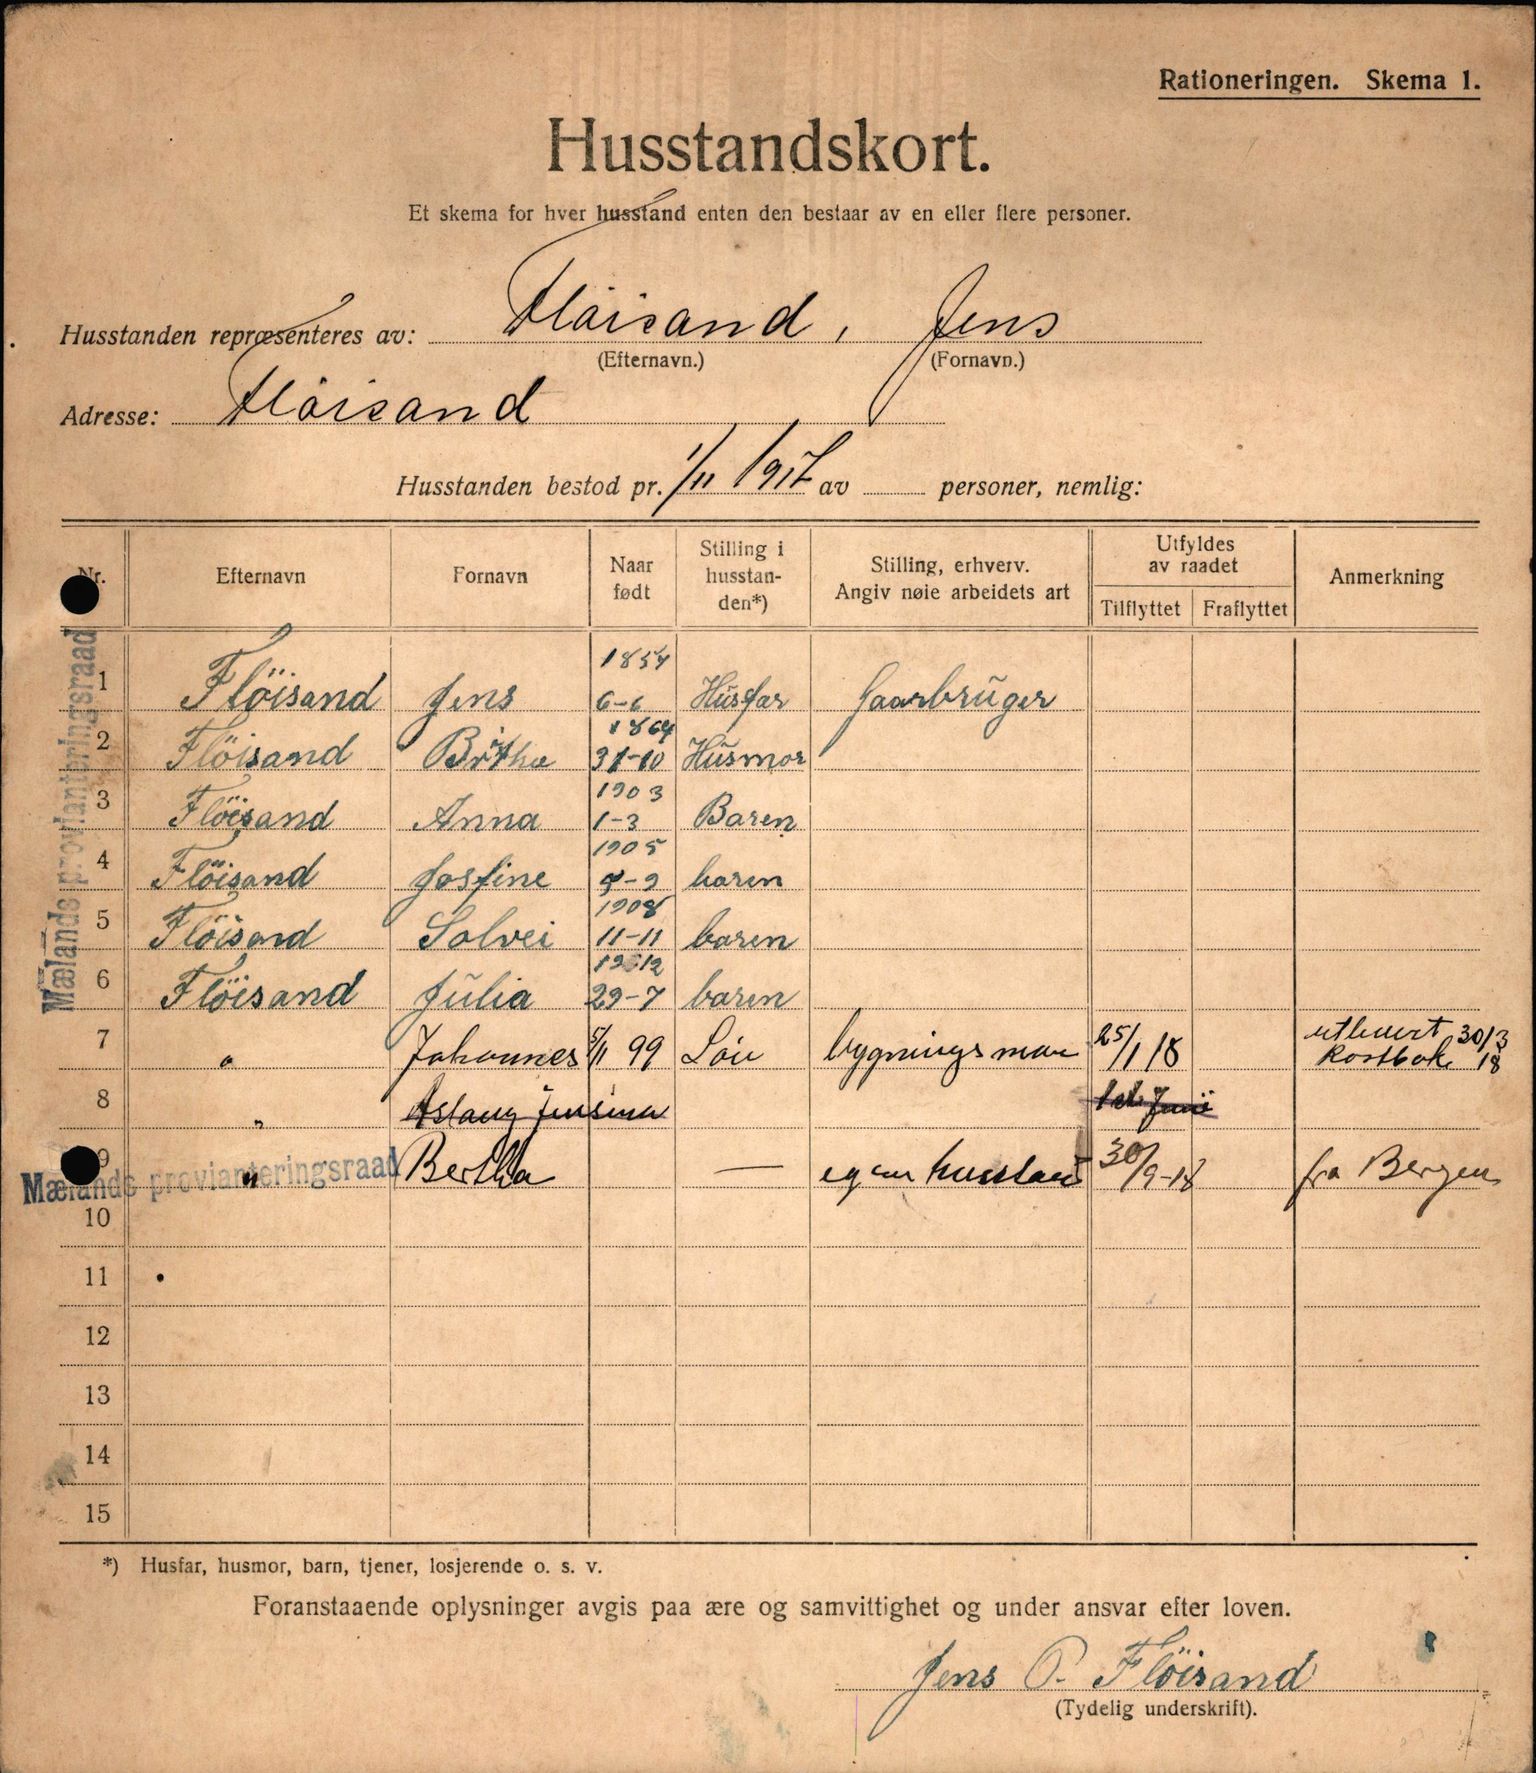 Rationeringen. Skema 1.
Husstandskort.
Et skema for hver husstand enten den bestaar av en eller flere personer.
Husstanden repræsenteres av: Flöisand, Jens
(Efternavn.) (Fornavn.)
Adresse: Flöisand
Husstanden bestod pr. 1/11 1917 av personer, nemlig:
Nr. Efternavn Fornavn Naar født Stilling i husstanden*) Stilling, erhverv. Angiv nøie arbeidets art Utfyldes av raadet Tilflyttet Fraflyttet Anmerkning
1 Flöisand Jens 1854 6-6 Husfar Gaarbruger
2 Flöisand Britha 1864 31-10 Husmor
3 Flöisand Anna 1903 1-3 Baren
4 Flöisand Josfine 1905 9-9 baren
5 Flöisand Solvei 1908 11-11 baren
6 Flöisand Julia 1912 29-7 baren
7 " Johannes 5/11 99 Sön bygningsman 25/1 18 utlevert 30/3 Kostbok 18
8 " Aslaug Jensina 1st Juni
9 " Bertha — egen husstand 30/9-18 fra Bergen
10
11
12
13
14
15
Mælands provianteringsraad
Mælands provianteringsraad
*) Husfar, husmor, barn, tjener, losjerende o. s. v.
Foranstaaende oplysninger avgis paa ære og samvittighet og under ansvar efter loven.
Jens P. Flöisand
(Tydelig underskrift).